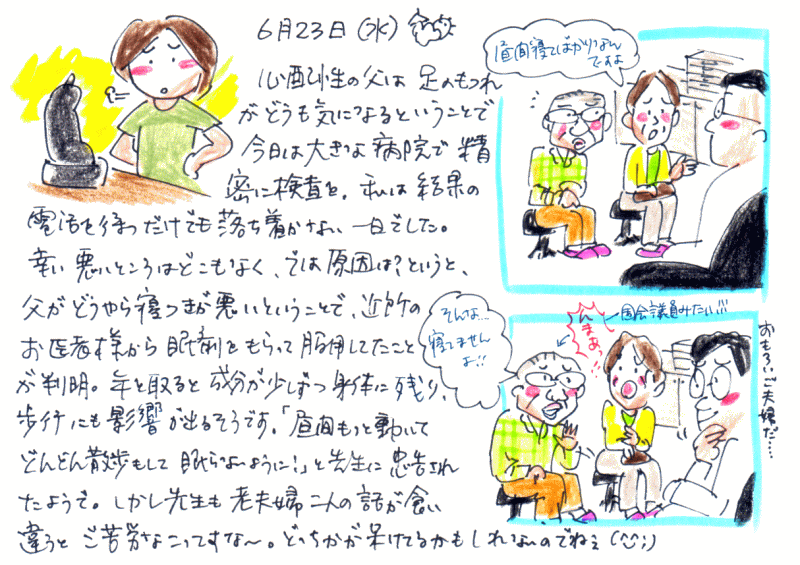 6月23日(水)
心配性の父は 足のもつれ
がどうも気になるということで
今日は大きな病院で精
密に検査を。私は結果の
電話を待つだけでも落ち着かない一日でした。
幸い悪いところはどこもなく、では原因は?というと、
父がどうやら寝つきが悪いということで、近所の
お医者様から眠剤をもらって服用してたこと
が判明。年を取ると成分が少しずつ身体に残り、
歩行にも影響が出るそうです。「昼間もっと動いて
どんどん散歩もして眠らないように!」と先生に忠告され
たようで。しかし先生も老夫婦二人の話が食い
違うとご苦労なこってすな~。どっちかが呆けてるかもしれないのでねぇ(^^;)
昼間寝てばかりなん
ですよ
そんな…
寝てませんよ!!
んまあっ!!
国会議員みたい!!!
おもろいご夫婦だ…